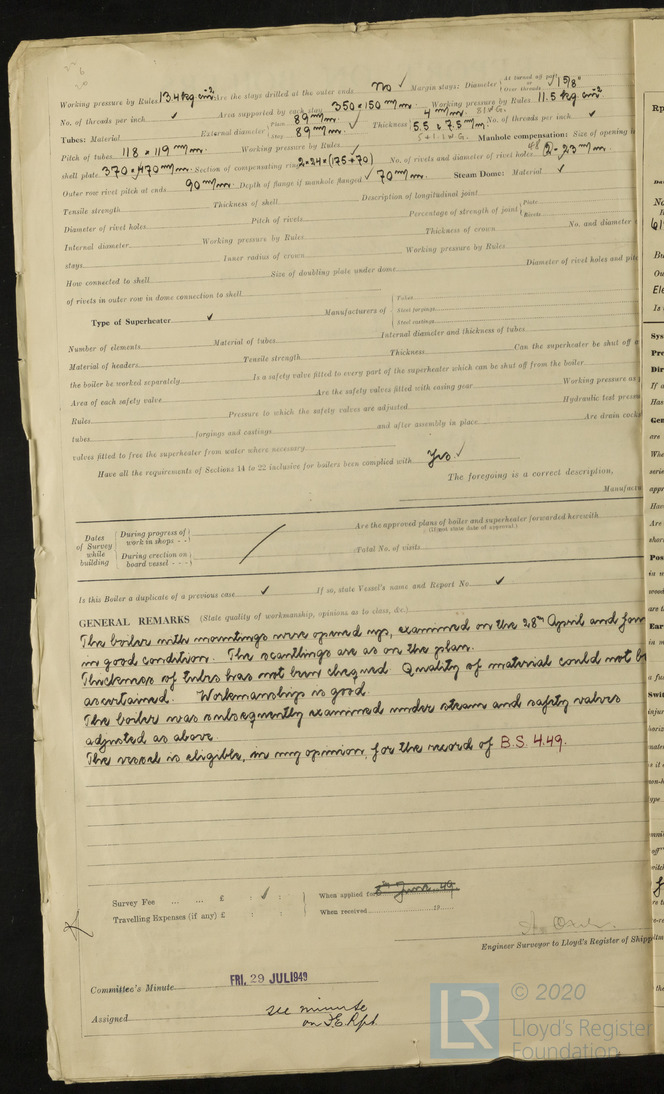 Working pressure by Rules 13.4 kg cm² Are the stays drilled at the outer ends No ✓ Margin stays: Diameter { At turned off part or Over threads ✓ 1 5/8"
No. of threads per inch ✓ Area supported by each stay 350 × 150 m/m. Working pressure by Rules 11.5 kg cm²
Tubes: Material External diameter { Plain 89 m/m. Stay 89 m/m. ✓ Thickness { 4 m/m. 8 I.W.G. 5.5 & 7.5 m/m. No. of threads per inch ✓
Pitch of tubes 118 × 119 m/m. Working pressure by Rules ✓ Manhole compensation: Size of opening in
shell plate 370 × 470 m/m. Section of compensating ring 2×24×(175+70) No. of rivets and diameter of rivet holes 48 23 m/m.
Outer row rivet pitch at ends 90 m/m. Depth of flange if manhole flanged ✓ 70 m/m. Steam Dome: Material ✓
Tensile strength Thickness of shell Description of longitudinal joint
Diameter of rivet holes Pitch of rivets Percentage of strength of joint { Plate Rivets
Internal diameter Working pressure by Rules Thickness of crown No. and diameter
stays Inner radius of crown Working pressure by Rules
How connected to shell Size of doubling plate under dome Diameter of rivet holes and pitch
of rivets in outer row in dome connection to shell
Type of Superheater ✓ Manufacturers of { Tubes Steel forgings Steel castings
Number of elements Material of tubes Internal diameter and thickness of tubes
Material of headers Tensile strength Thickness Can the superheater be shut off a
the boiler be worked separately Is a safety valve fitted to every part of the superheater which can be shut off from the boiler
Area of each safety valve Are the safety valves fitted with easing gear Working pressure as
Rules Pressure to which the safety valves are adjusted Hydraulic test pressu
tubes forgings and castings and after assembly in place Are drain cocks
valves fitted to free the superheater from water where necessary
Have all the requirements of Sections 14 to 22 inclusive for boilers been complied with Yes ✓
The foregoing is a correct description,
Manufactu
Dates of Survey while building { During progress of work in shops - - During erection on board vessel - - -
Are the approved plans of boiler and superheater forwarded herewith
(If not state date of approval.)
Total No. of visits
Is this Boiler a duplicate of a previous case ✓ If so, state Vessel's name and Report No. ✓
GENERAL REMARKS (State quality of workmanship, opinions as to class, &c.)
The boiler with mountings were opened up, examined on the 28th April and foun
in good condition. The scantlings are as on the plan.
Thickness of tubes has not been chequed Quality of material could not b
ascertained. Workmanship is good.
The boiler was subsequently examined under steam and safety valves
adjusted as above.
The vessel is eligible, in my opinion, for the record of B.S. 4.49.
Survey Fee ... ... £ : ✓ : When applied for 8th June 49
Travelling Expenses (if any) £ : : When received 19
Engineer Surveyor to Lloyd's Register of Shipp
Committee's Minute FRI. 29 JUL 1949
Assigned see minute
on F.E. Rpt.
© 2020
Lloyd's Register
Foundation